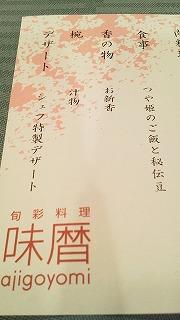 食事
つや姫のご飯と秘伝豆
香の物
お新香
椀
汁物
デザート
シェフ特製デザート
旬彩料理
味暦
ajigoyomi